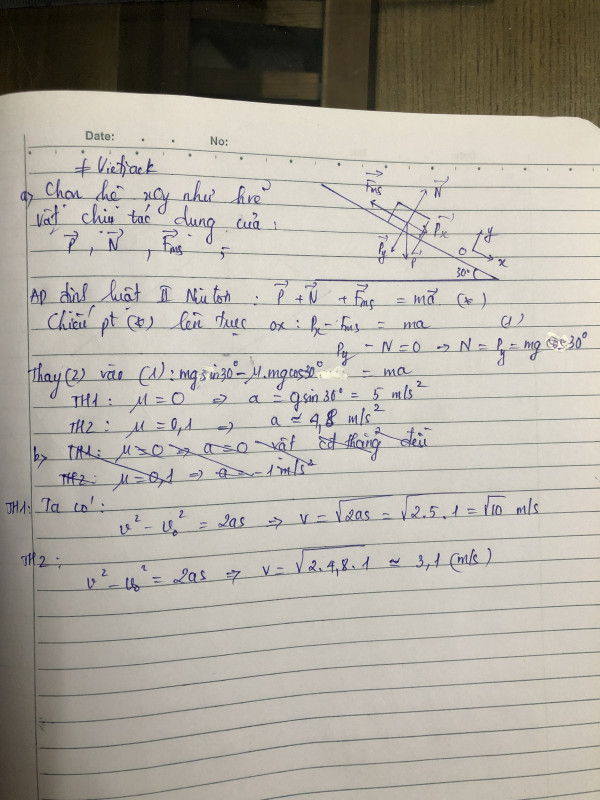 Date: No:
# Vietjack
a, Chọn hệ xOy như hvẽ
vật chịu tác dụng của:
P⃗, N⃗, F⃗ms;
F⃗ms
N⃗
P⃗x
P⃗y
P⃗
O
y
x
30°
AD định luật II Niuton: P⃗ + N⃗ + F⃗ms = ma⃗ (*)
Chiếu pt (*) lên trục ox: Px - Fms = ma (1)
Py - N = 0 → N = Py = mg cos30°
Thay (2) vào (1): mg sin30° - μ.mgcos30° = ma
TH1: μ = 0 ⇒ a = gsin30° = 5 m/s²
TH2: μ = 0,1 ⇒ a ≃ 4,8 m/s²
b, TH1: μ = 0 ⇒ a = 0 vật cđ thẳng đều
TH2: μ = 0,1 ⇒ a = -1 m/s²
TH1: Ta có:
v² - v₀² = 2as ⇒ v = √2as = √2.5.1 = √10 m/s
TH2:
v² - v₀² = 2as ⇒ v = √2.4,8.1 ≃ 3,1 (m/s)